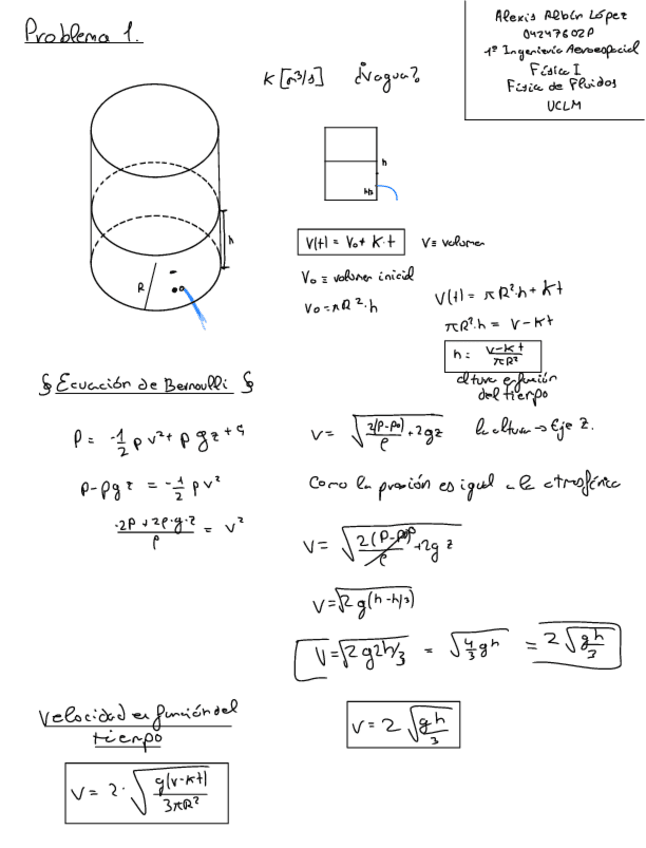 Problema 1.
Alexis Albir López
04247602P
1º Ingeniería Aeroespacial
Física I
Física de Fluidos
UCLM
K [m³/s] ¿Vagua?
h
h/3
h
R
V(t) = V₀ + K·t V ≡ volumen
V₀ ≡ volumen inicial
V₀ = πR²·h
V(t) = πR²·h + Kt
πR²·h = V - Kt
h = (V-Kt)/(πR²)
altura en función
del tiempo
§ Ecuación de Bernoulli §
P = -1/2 ρv² + ρgz + 
P - ρgz = -1/2 ρv²
(-2P + 2ρ·g·z)/ρ = v²
V = √(2(P-P₀)/ρ + 2gz) la altura → Eje Z.
Como la presión es igual a la atmosférica
V = √(2(P-P₀)/ρ + 2gz)
V = √(2g(h-h/3))
V = √(2g2h/3) = √(4/3 gh) = 2√(gh/3)
V = 2√(gh/3)
Velocidad en función del
tiempo
V = 2·√(g(V-Kt)/(3πR²))